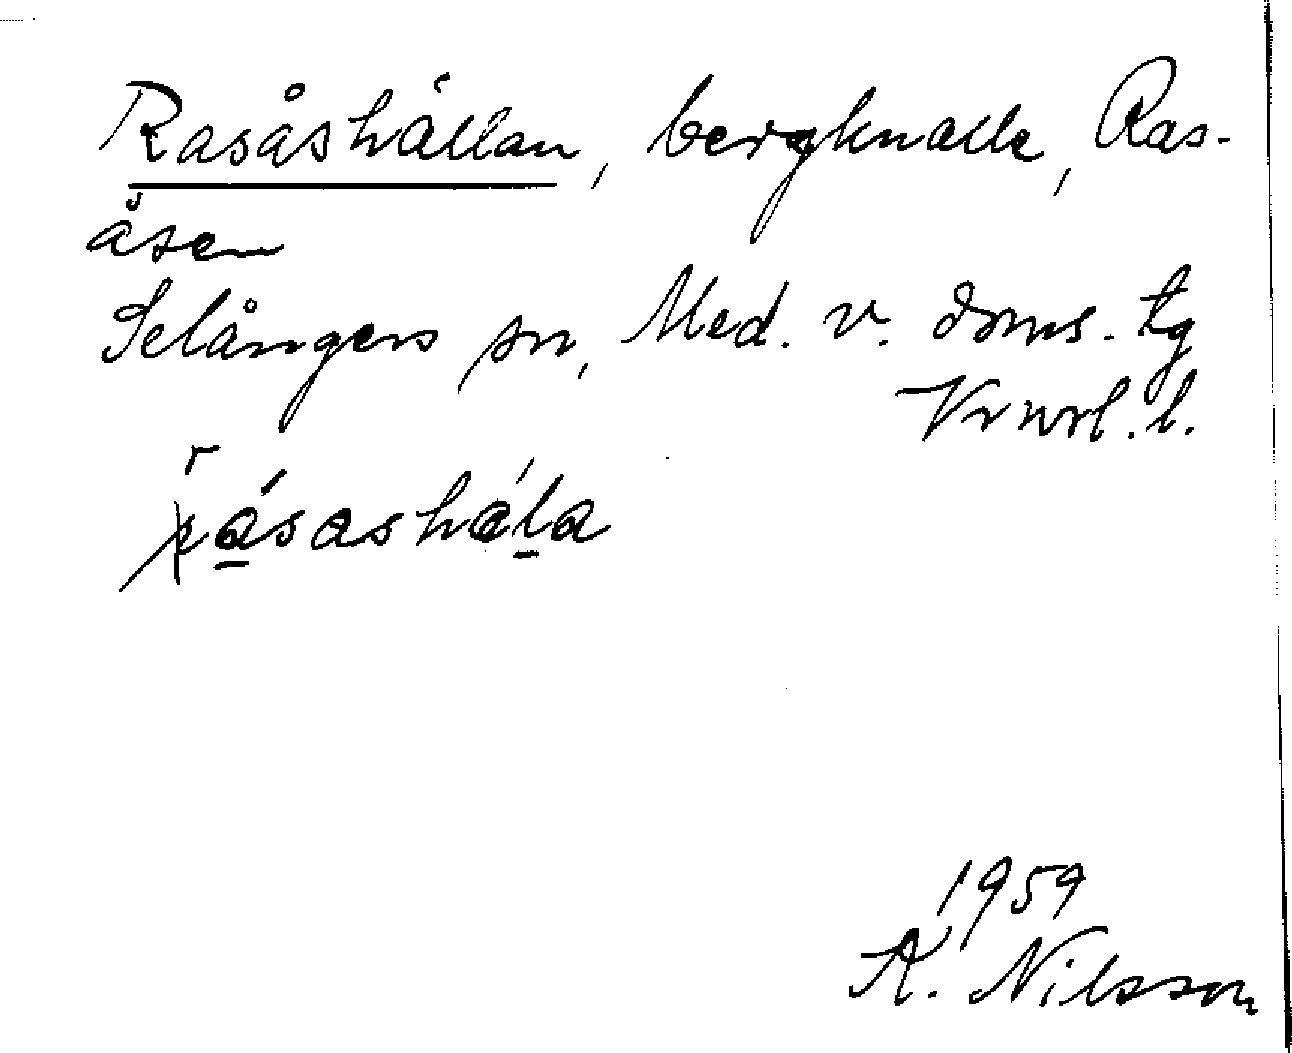 Rasåshällan, bergknalle, Ras-
åsen
Selångers sn, Med. v. doms. tg
Vrml. l.
r
ásashála
1959
K. Nilsson